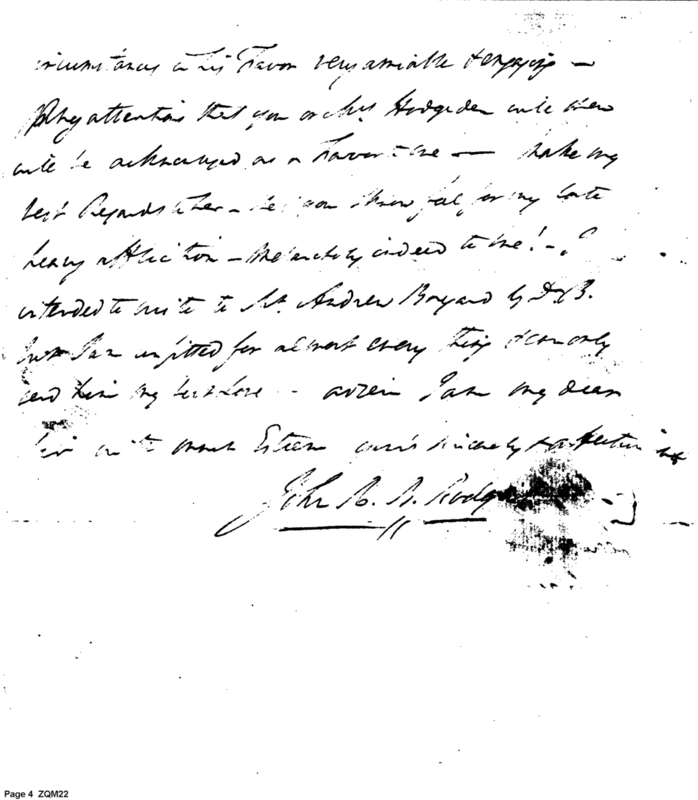 circumstances in his Favor very amiable & engaging —
Any attentions that you or Mrs Hodgsden will shew
will be acknowledged as a Favor to me — Make my
best Regards to her — you know feel for my late
heavy affliction — Melancholy indeed to me! — I
intended to write to Mr. Andrew Bayard by D. B.
but I am unfitted for almost every thing & can only
send him my best Love — adieu I am my dear
Sir with much Esteem yours sincerely & affectionately
John R. B. Rodgers
Page 4 ZQM22